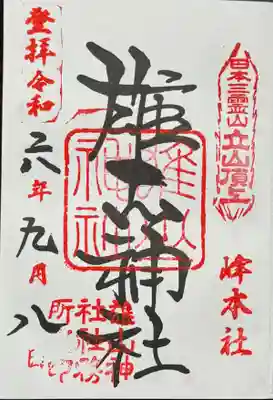 日本三霊山立山頂上
峰本社
雄山神社
雄山神社
登拝令和
六年九月八
雄山神
社社務
所